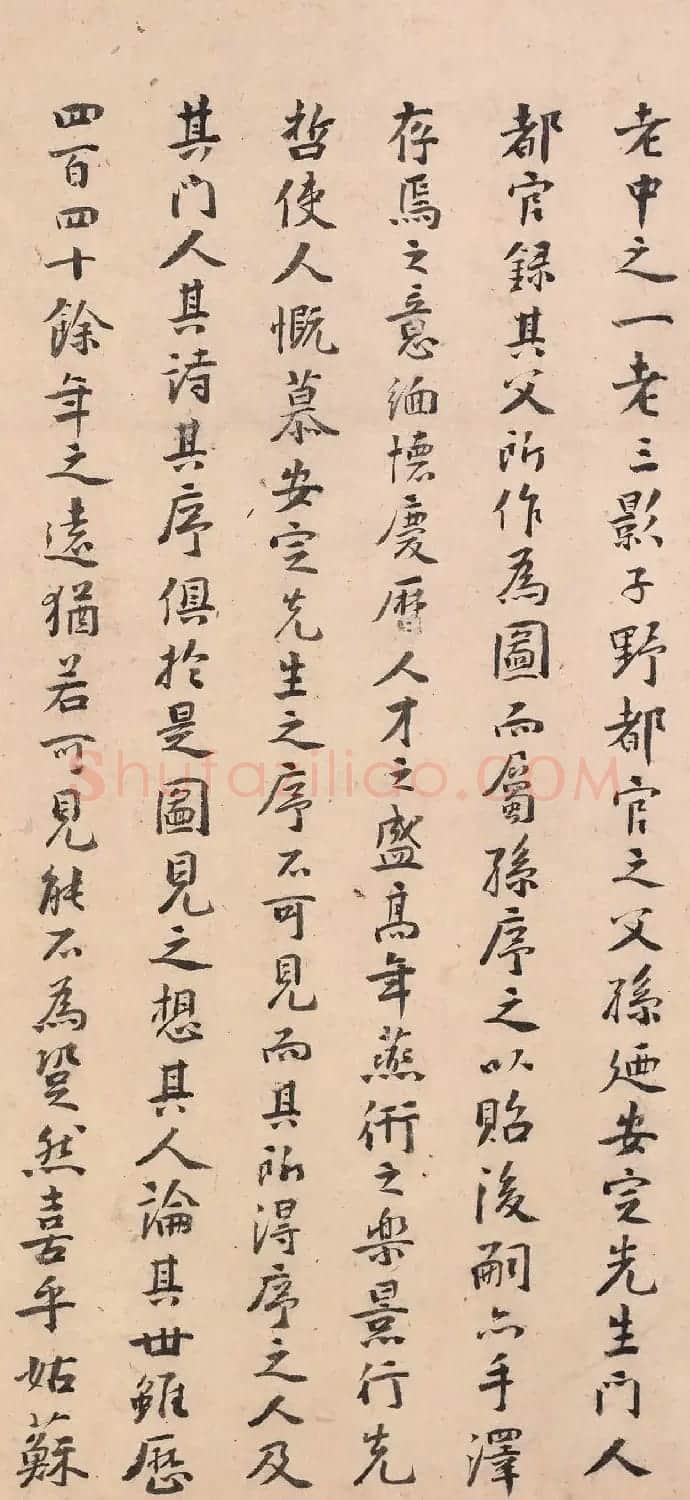 老中之一老三影子野都官之父孫廼安定先生門人
都官録其父所作為圖而屬孫序之以貽後嗣亦手澤
存焉之意緬懷慶曆人才之盛高年燕衎之樂景行先
哲使人慨慕安定先生之序不可見而其所得序之人及
其門人其詩其序俱於是圖見之想其人論其世雖歷
四百四十餘年之遠猶若可見能不為跫然喜乎姑蘇
Shufaziliao.COM